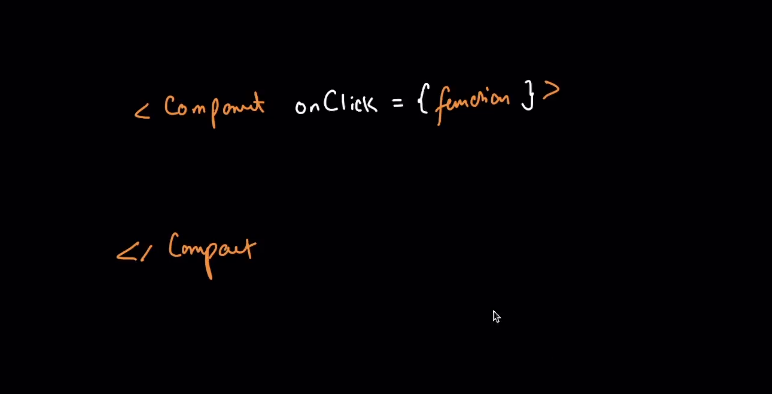 < Component onClick = { function } >
</ Component